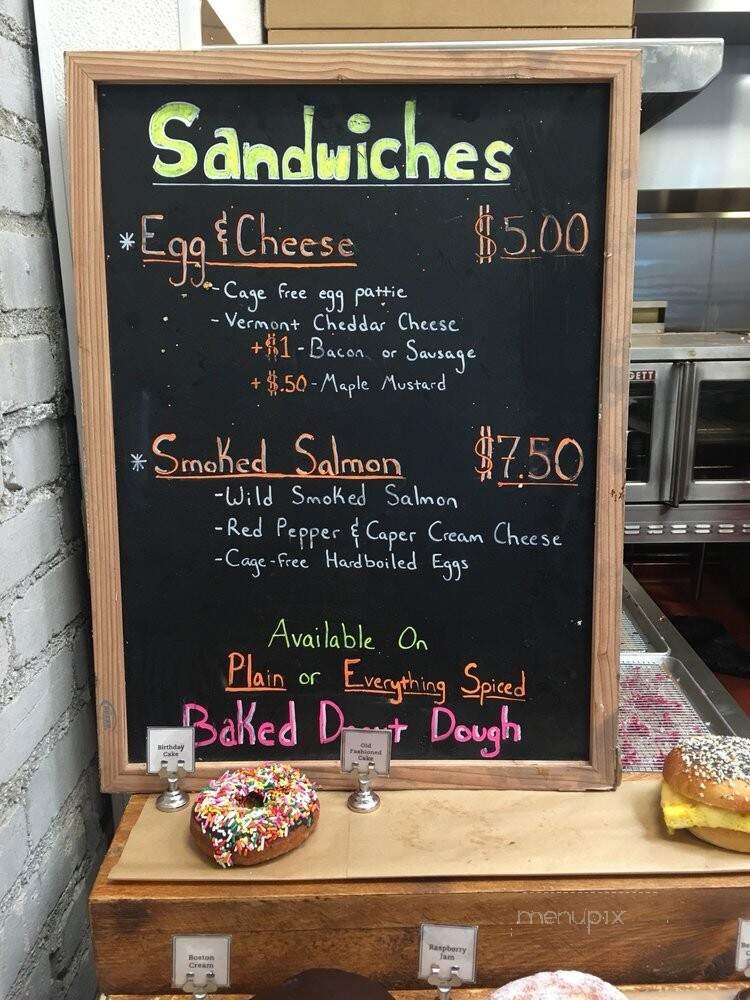 Sandwiches
* Egg & Cheese $5.00
- Cage free egg pattie
- Vermont Cheddar Cheese
+$1 - Bacon or Sausage
+$.50 - Maple Mustard
* Smoked Salmon $7.50
- Wild Smoked Salmon
- Red Pepper & Caper Cream Cheese
- Cage-Free Hardboiled Eggs
Available On
Plain or Everything Spiced
Baked Dough
Birthday
Cake
Old
Fashioned
Cake
Boston
Cream
Raspberry
Jam
menupix